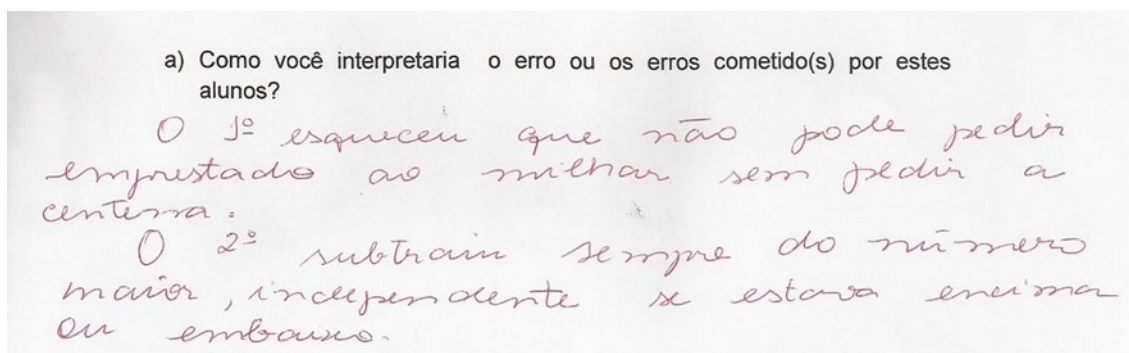 a) Como você interpretaria o erro ou os erros cometido(s) por estes
alunos?
O 1º esqueceu que não pode pedir
emprestado ao milhar sem pedir a
centena.
O 2º subtraiu sempre do número
maior, independente se estava encima
ou embaixo.